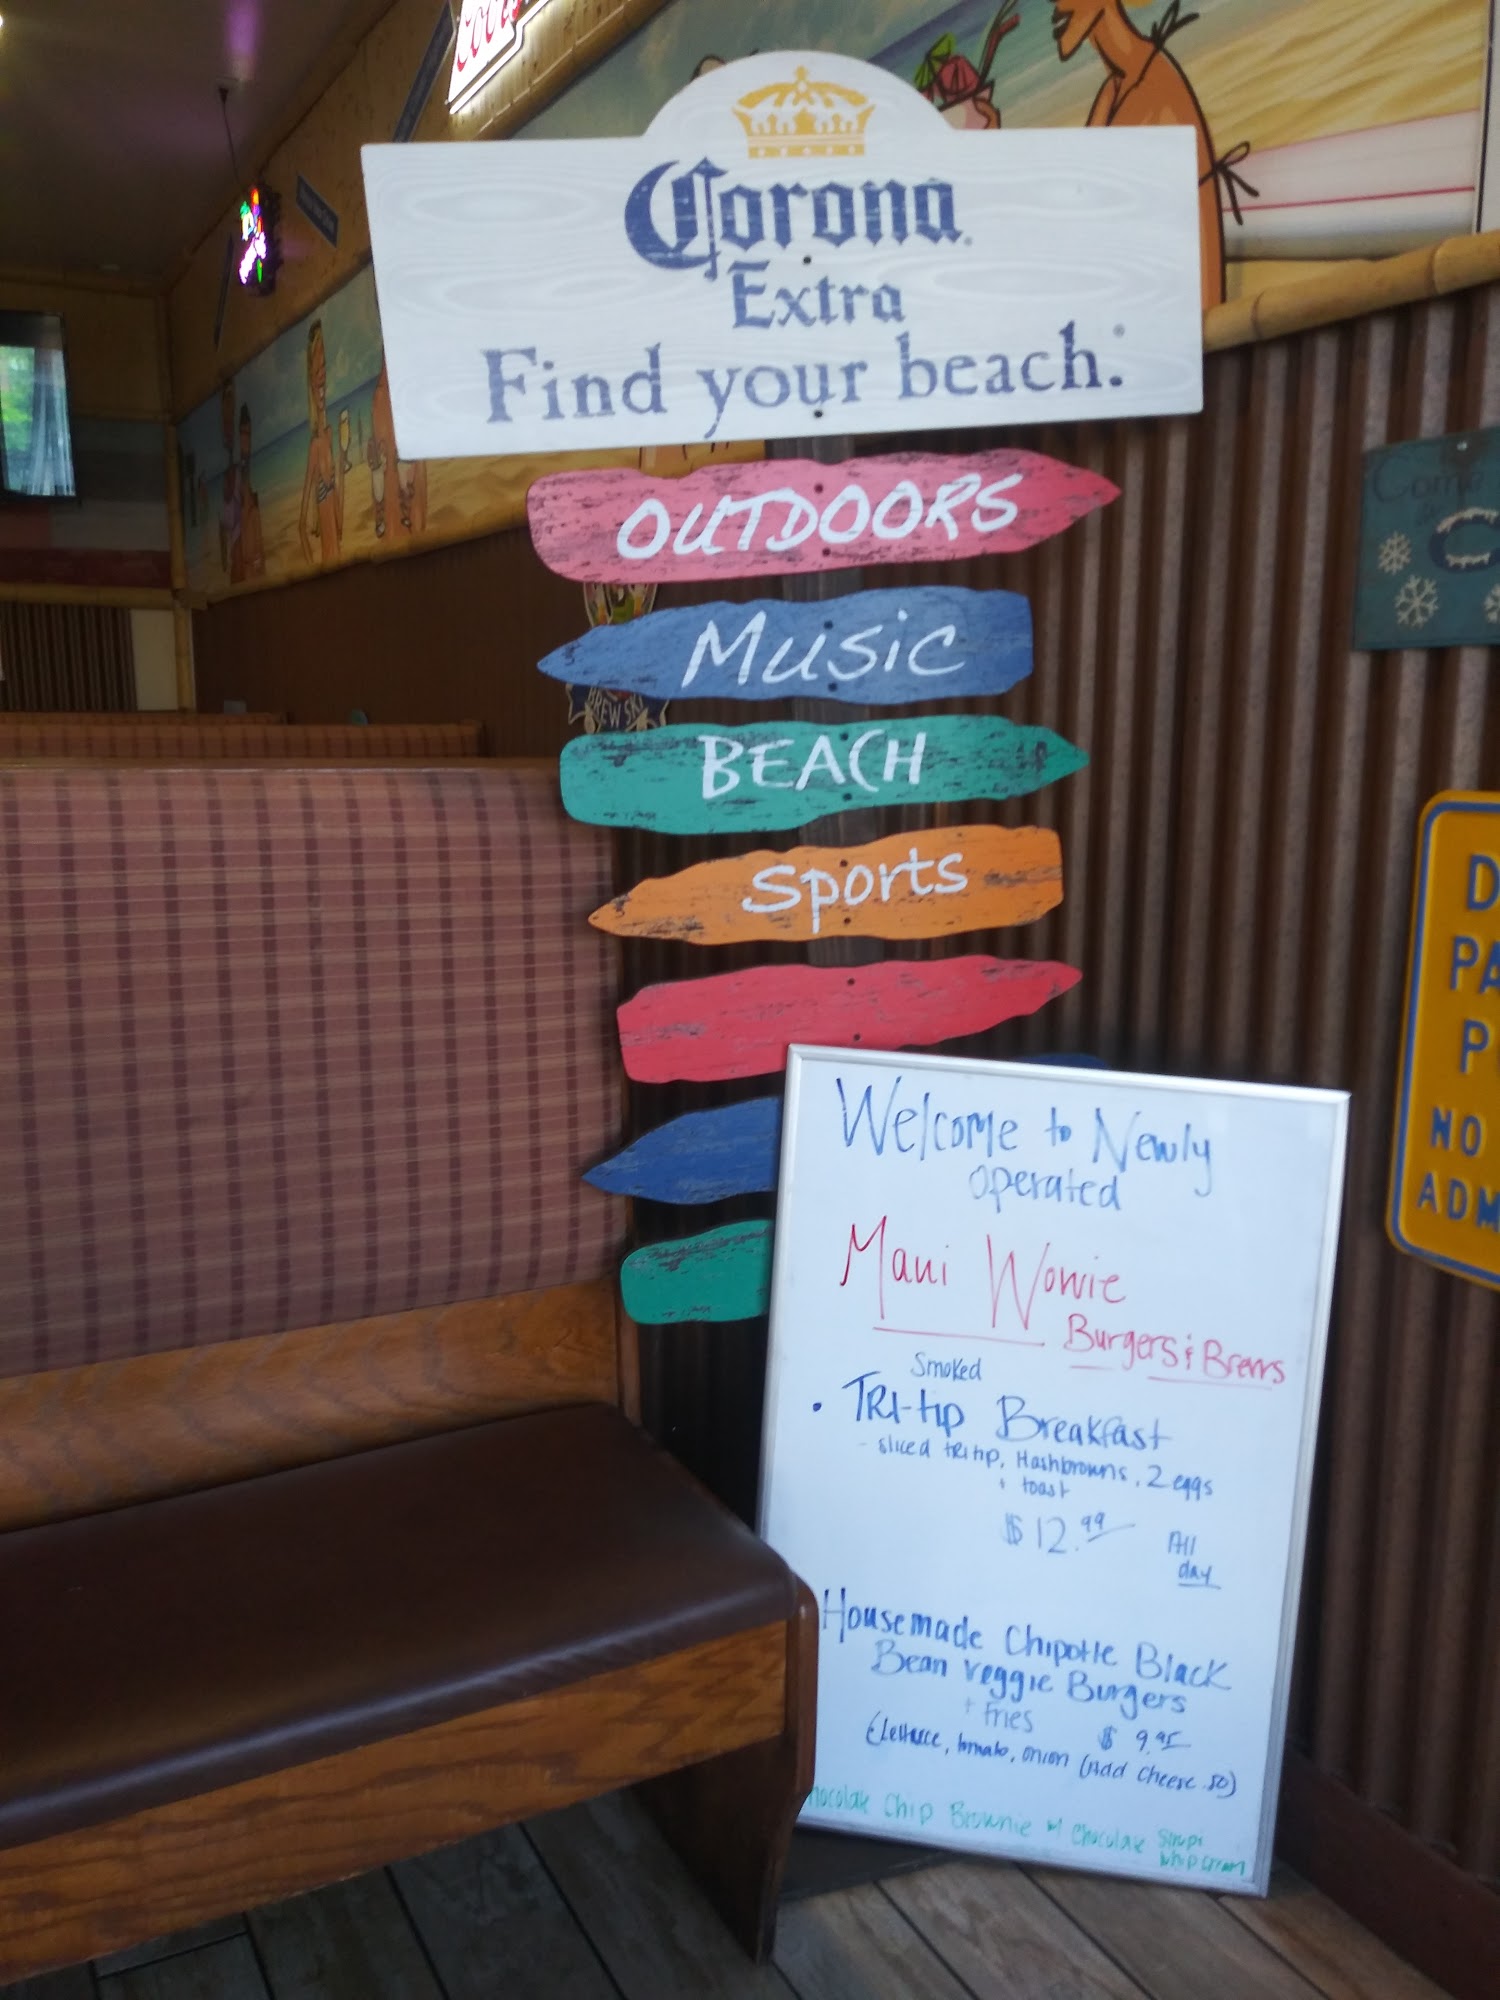 Corona
Extra
Find your beach.
OUTDOORS
Music
BEACH
Sports
BREW SKI
Come
D
PA
P
NO
ADM
Welcome to Newly
operated
Maui Wowie
Burgers & Brews
Smoked
• TRI-tip Breakfast
- sliced tritip, Hashbrowns, 2 eggs
+ toast
$12.99
All
day
Housemade Chipotle Black
Bean veggie Burgers
+ fries
$ 9.95
(Lettuce, tomato, onion (Add cheese .50)
hocolate Chip Brownie w/ Chocolate Sirup
whip cream